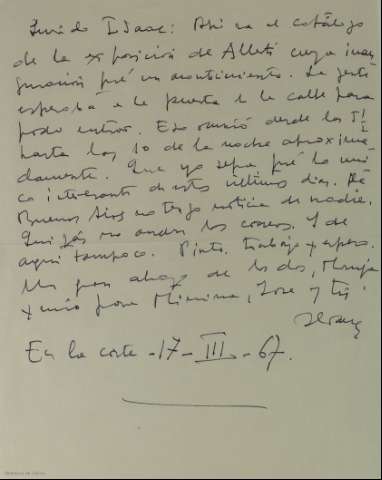 Querido Isaac: Ahí va el catálogo
de la exposición de Alberti cuya inau
guración fué un acontecimiento. La gente
esperaba en la puerta de la calle para
poder entrar. Eso ocurrió desde las 7½
hasta las 10 de la noche aproxima
damente. Que yo sepa fué lo úni
co interesante de estos últimos días. De
Buenos Aires no tengo noticia de nadie.
Quizás no andan los correos. Y de
aquí tampoco. Pinto, trabajo y espero.
Un gran abrazo de los dos, Maruja
y mío para Mimina, Jose y tú.
En la corte - 17 - III - 67.